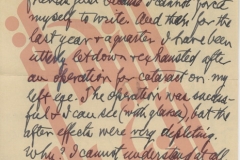 friends just because I cannot force
myself to write. And tho' for the
last year & a quarter I have been
utterly let down & exhausted after
an operation for cataract on my
left eye. The operation was success-
ful & I can see (with glasses), but the
after effects were very depleting.
Why? I cannot understand it all